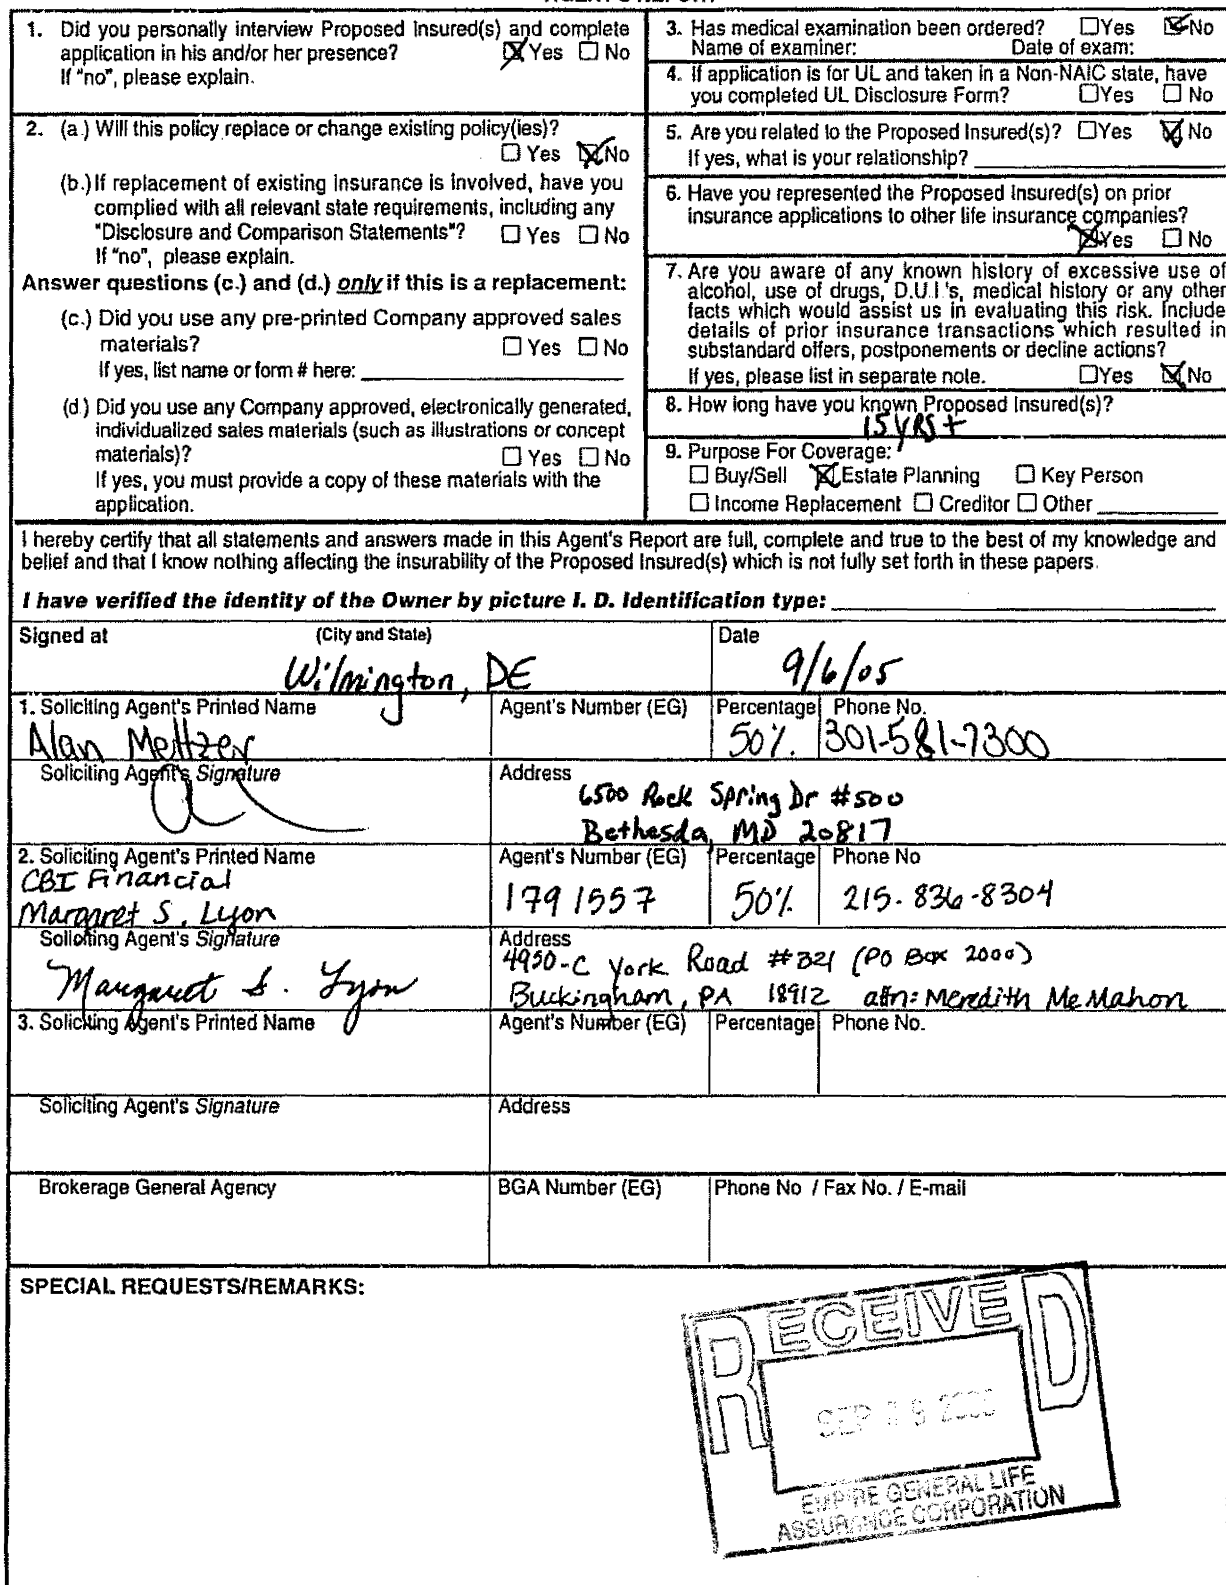 1. Did you personally interview Proposed Insured(s) and complete
application in his and/or her presence? ☒ Yes ☐ No
If "no", please explain.
2. (a.) Will this policy replace or change existing policy(ies)?
☐ Yes ☒ No
(b.) If replacement of existing insurance is involved, have you
complied with all relevant state requirements, including any
"Disclosure and Comparison Statements"? ☐ Yes ☐ No
If "no", please explain.
Answer questions (c.) and (d.) only if this is a replacement:
(c.) Did you use any pre-printed Company approved sales
materials? ☐ Yes ☐ No
If yes, list name or form # here:
(d.) Did you use any Company approved, electronically generated,
individualized sales materials (such as illustrations or concept
materials)? ☐ Yes ☐ No
If yes, you must provide a copy of these materials with the
application.
3. Has medical examination been ordered? ☐ Yes ☒ No
Name of examiner: Date of exam:
4. If application is for UL and taken in a Non-NAIC state, have
you completed UL Disclosure Form? ☐ Yes ☐ No
5. Are you related to the Proposed Insured(s)? ☐ Yes ☒ No
If yes, what is your relationship?
6. Have you represented the Proposed Insured(s) on prior
insurance applications to other life insurance companies?
☒ Yes ☐ No
7. Are you aware of any known history of excessive use of
alcohol, use of drugs, D.U.I.'s, medical history or any other
facts which would assist us in evaluating this risk. Include
details of prior insurance transactions which resulted in
substandard offers, postponements or decline actions?
If yes, please list in separate note. ☐ Yes ☒ No
8. How long have you known Proposed Insured(s)?
15 YRS +
9. Purpose For Coverage:
☐ Buy/Sell ☒ Estate Planning ☐ Key Person
☐ Income Replacement ☐ Creditor ☐ Other
I hereby certify that all statements and answers made in this Agent's Report are full, complete and true to the best of my knowledge and
belief and that I know nothing affecting the insurability of the Proposed Insured(s) which is not fully set forth in these papers.
I have verified the identity of the Owner by picture I. D. Identification type:
Signed at (City and State) Date
Wilmington, DE 9/6/05
1. Soliciting Agent's Printed Name Agent's Number (EG) Percentage Phone No.
Alan Meltzer 50% 301-581-7300
Soliciting Agent's Signature Address
6500 Rock Spring Dr #500
Bethesda, MD 20817
2. Soliciting Agent's Printed Name Agent's Number (EG) Percentage Phone No
CBI Financial
Margaret S. Lyon 1791557 50% 215-836-8304
Soliciting Agent's Signature Address
Margaret S. Lyon
4950-C York Road #321 (PO Box 2000)
Buckingham, PA 18912 attn: Meredith McMahon
3. Soliciting Agent's Printed Name Agent's Number (EG) Percentage Phone No.
Soliciting Agent's Signature Address
Brokerage General Agency BGA Number (EG) Phone No / Fax No. / E-mail
SPECIAL REQUESTS/REMARKS:
RECEIVED
SEP
EMPIRE GENERAL LIFE
ASSURANCE CORPORATION